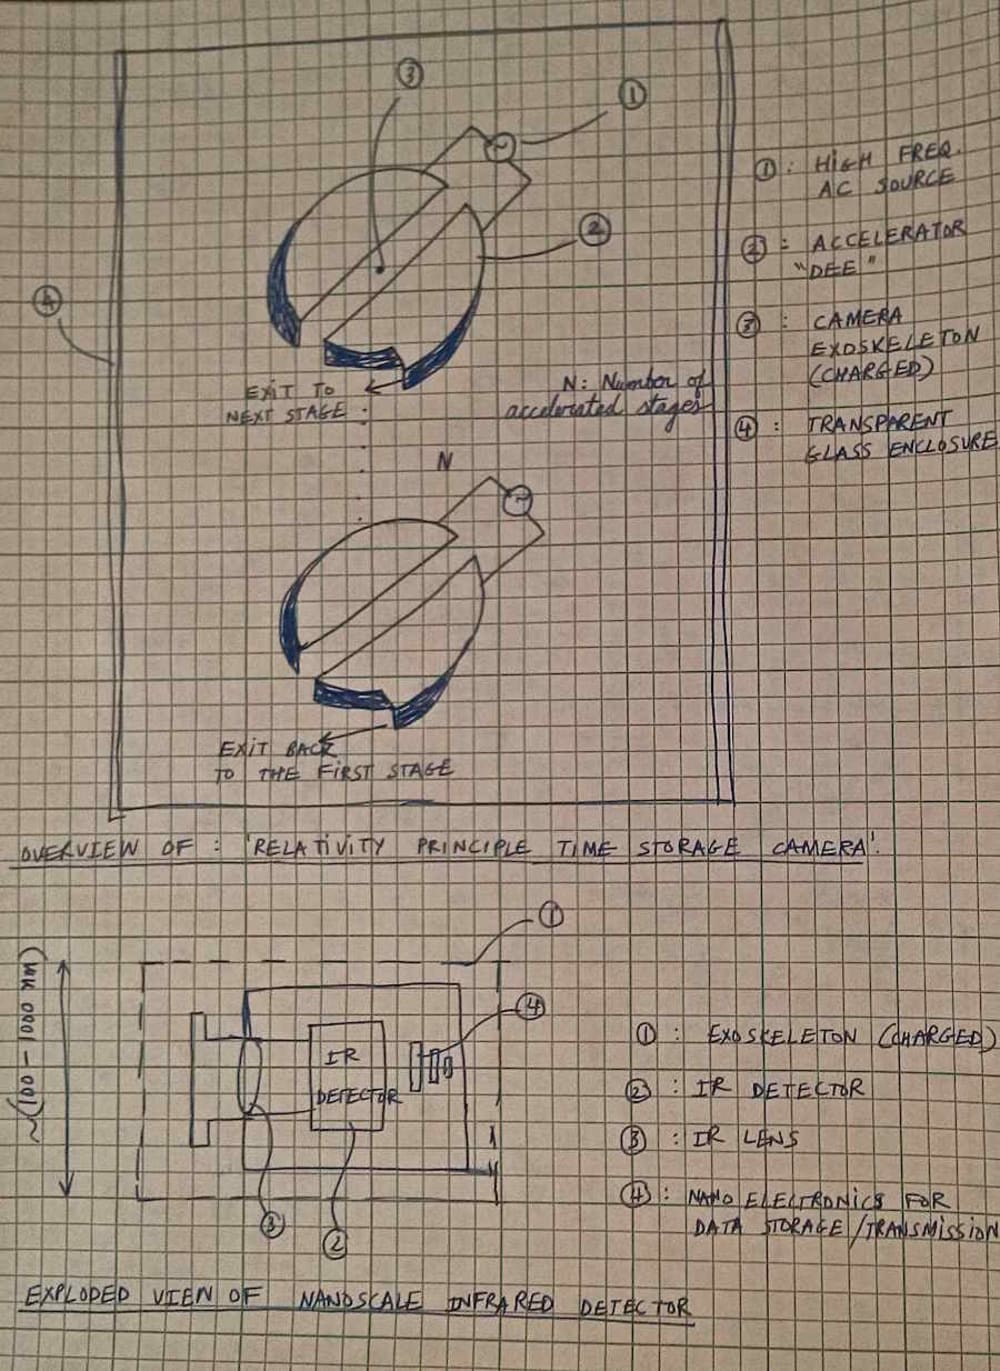 ③
①
①: HIGH FREQ.
AC SOURCE
②
②: ACCELERATOR
"DEE"
④
③: CAMERA
EXOSKELETON
(CHARGED)
EXIT TO
NEXT STAGE
N: Number of
accelerated stages
④: TRANSPARENT
GLASS ENCLOSURE
N
EXIT BACK
TO THE FIRST STAGE
OVERVIEW OF: 'RELATIVITY PRINCIPLE TIME STORAGE CAMERA'.
①
④
IR
DETECTOR
①: EXOSKELETON (CHARGED)
②: IR DETECTOR
③: IR LENS
④: NANO ELECTRONICS FOR
DATA STORAGE/TRANSMISSION
③
②
EXPLODED VIEW OF NANOSCALE INFRARED DETECTOR